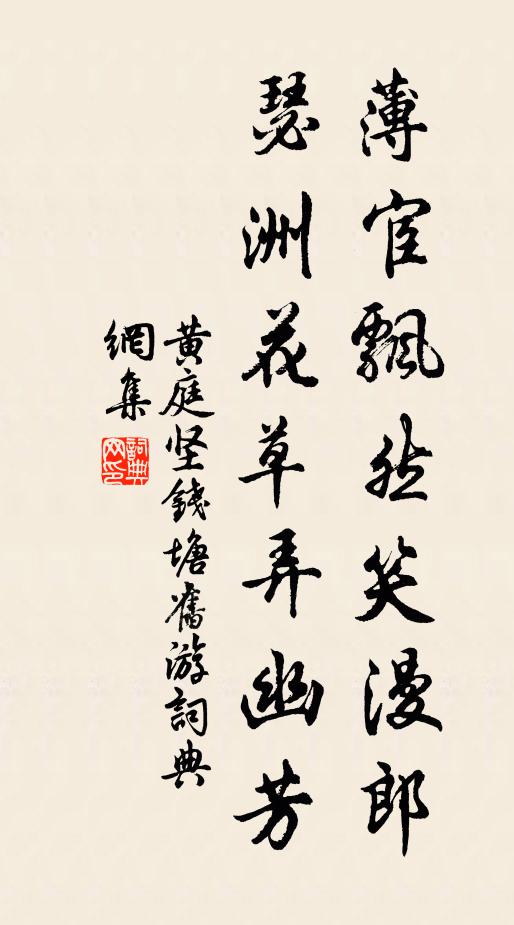 薄宦飄然笑漫郎
瑟洲花草弄幽芳
黄庭坚錢塘舊游詞典
網集
詞典網印